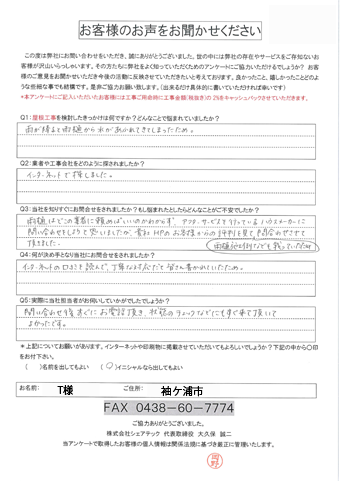 お客様のお声をお聞かせください
この度は弊社にお問い合わせをいただき、誠にありがとうございました。世の中には弊社の存在やサービスをご存知ないお
客様が沢山いらっしゃいます。その方たちに弊社をよく知っていただくためのアンケートにご協力いただけるでしょうか？ お客
様のご意見をお聞かせいただき今後の活動に反映させていただきたいと考えております。良かったこと、嬉しかったことどのよ
うな些細な事でも結構です。是非ご協力お願い致します。（出来るだけ具体的に書いていただければ幸いです）
*本アンケートにご記入いただいたお客様には工事ご用命時に工事金額(税抜き)の2%をキャッシュバックさせていただきます。
Q1：屋根工事を検討したきっかけは何ですか？どんなことで悩まれていましたか？
雨が降ると雨樋から水があふれてきてしまったため。
Q2：業者や工事会社をどのように探されましたか？
インターネットで探しました。
Q3：当社を知りすぐにお問合せをされましたか？もし悩まれたとしたらどんなことがご不安でしたか？
雨樋はどこの業者に頼めばいいのかわからず、アフターサービスを行っているハウスメーカーに
問い合わせをしようと思いましたが、貴社HPのお客様からの評判を見て問合わせさせて
頂きました。
雨樋施工例なども載っていたため
Q4：何が決め手となり当社にお問合せをされましたか？
インターネットの口コミを読んで、丁寧な対応だと皆さん書かれていたため。
Q5：実際に当社担当者がお伺いしていかがでしたでしょうか？
問い合わせ後すぐにお電話頂き、状況のチェックなどにもすぐ来て頂いて
よかったです。
＊上記についてお願いがあります。インターネットや印刷物に掲載させていただいてもよろしいでしょうか？下記の中から〇印
をお付下さい。
（　　）名前を出してもよい　（〇）イニシャルなら出してもよい
お名前：　T様　ご住所：　袖ケ浦市
FAX 0438-60-7774
ご協力ありがとうございました。
株式会社シェアテック 代表取締役 大久保 誠二
当アンケートで取得したお客様の個人情報は関係法規に基づき厳正に管理いたします。